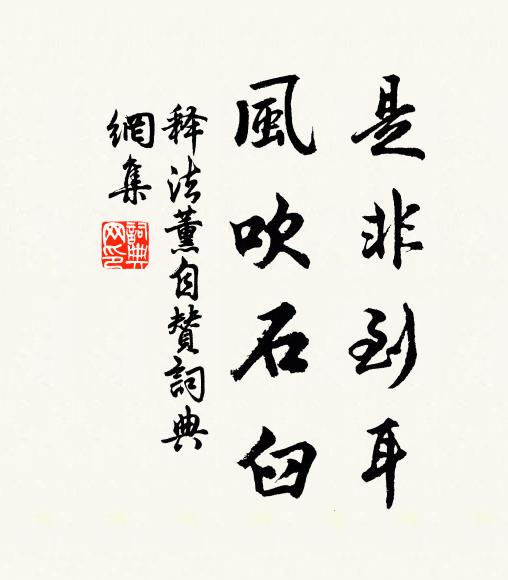 是非到耳
風吹石臼
释法薰自赞詞典
網集
詞典
网印